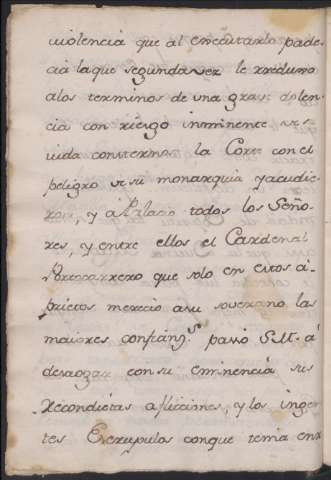 violencia que al executarlo pade
cia la que segunda vez le reduxo
alos terminos de una grave dolen
cia con riesgo inminente de su
vida consternose la Corte con el
peligro de su monarquia y acudie
ron, y a Palacio todos los Seño
res, y entre ellos el Cardenal
Portocarrero que solo en estos a-
prietos merecio a su soverano las
maiores confianz.s passò S.M. à
desaogar con su eminencia sus
Recondietas aflicciones, y los ingen
tes Escrupulos conque temia en